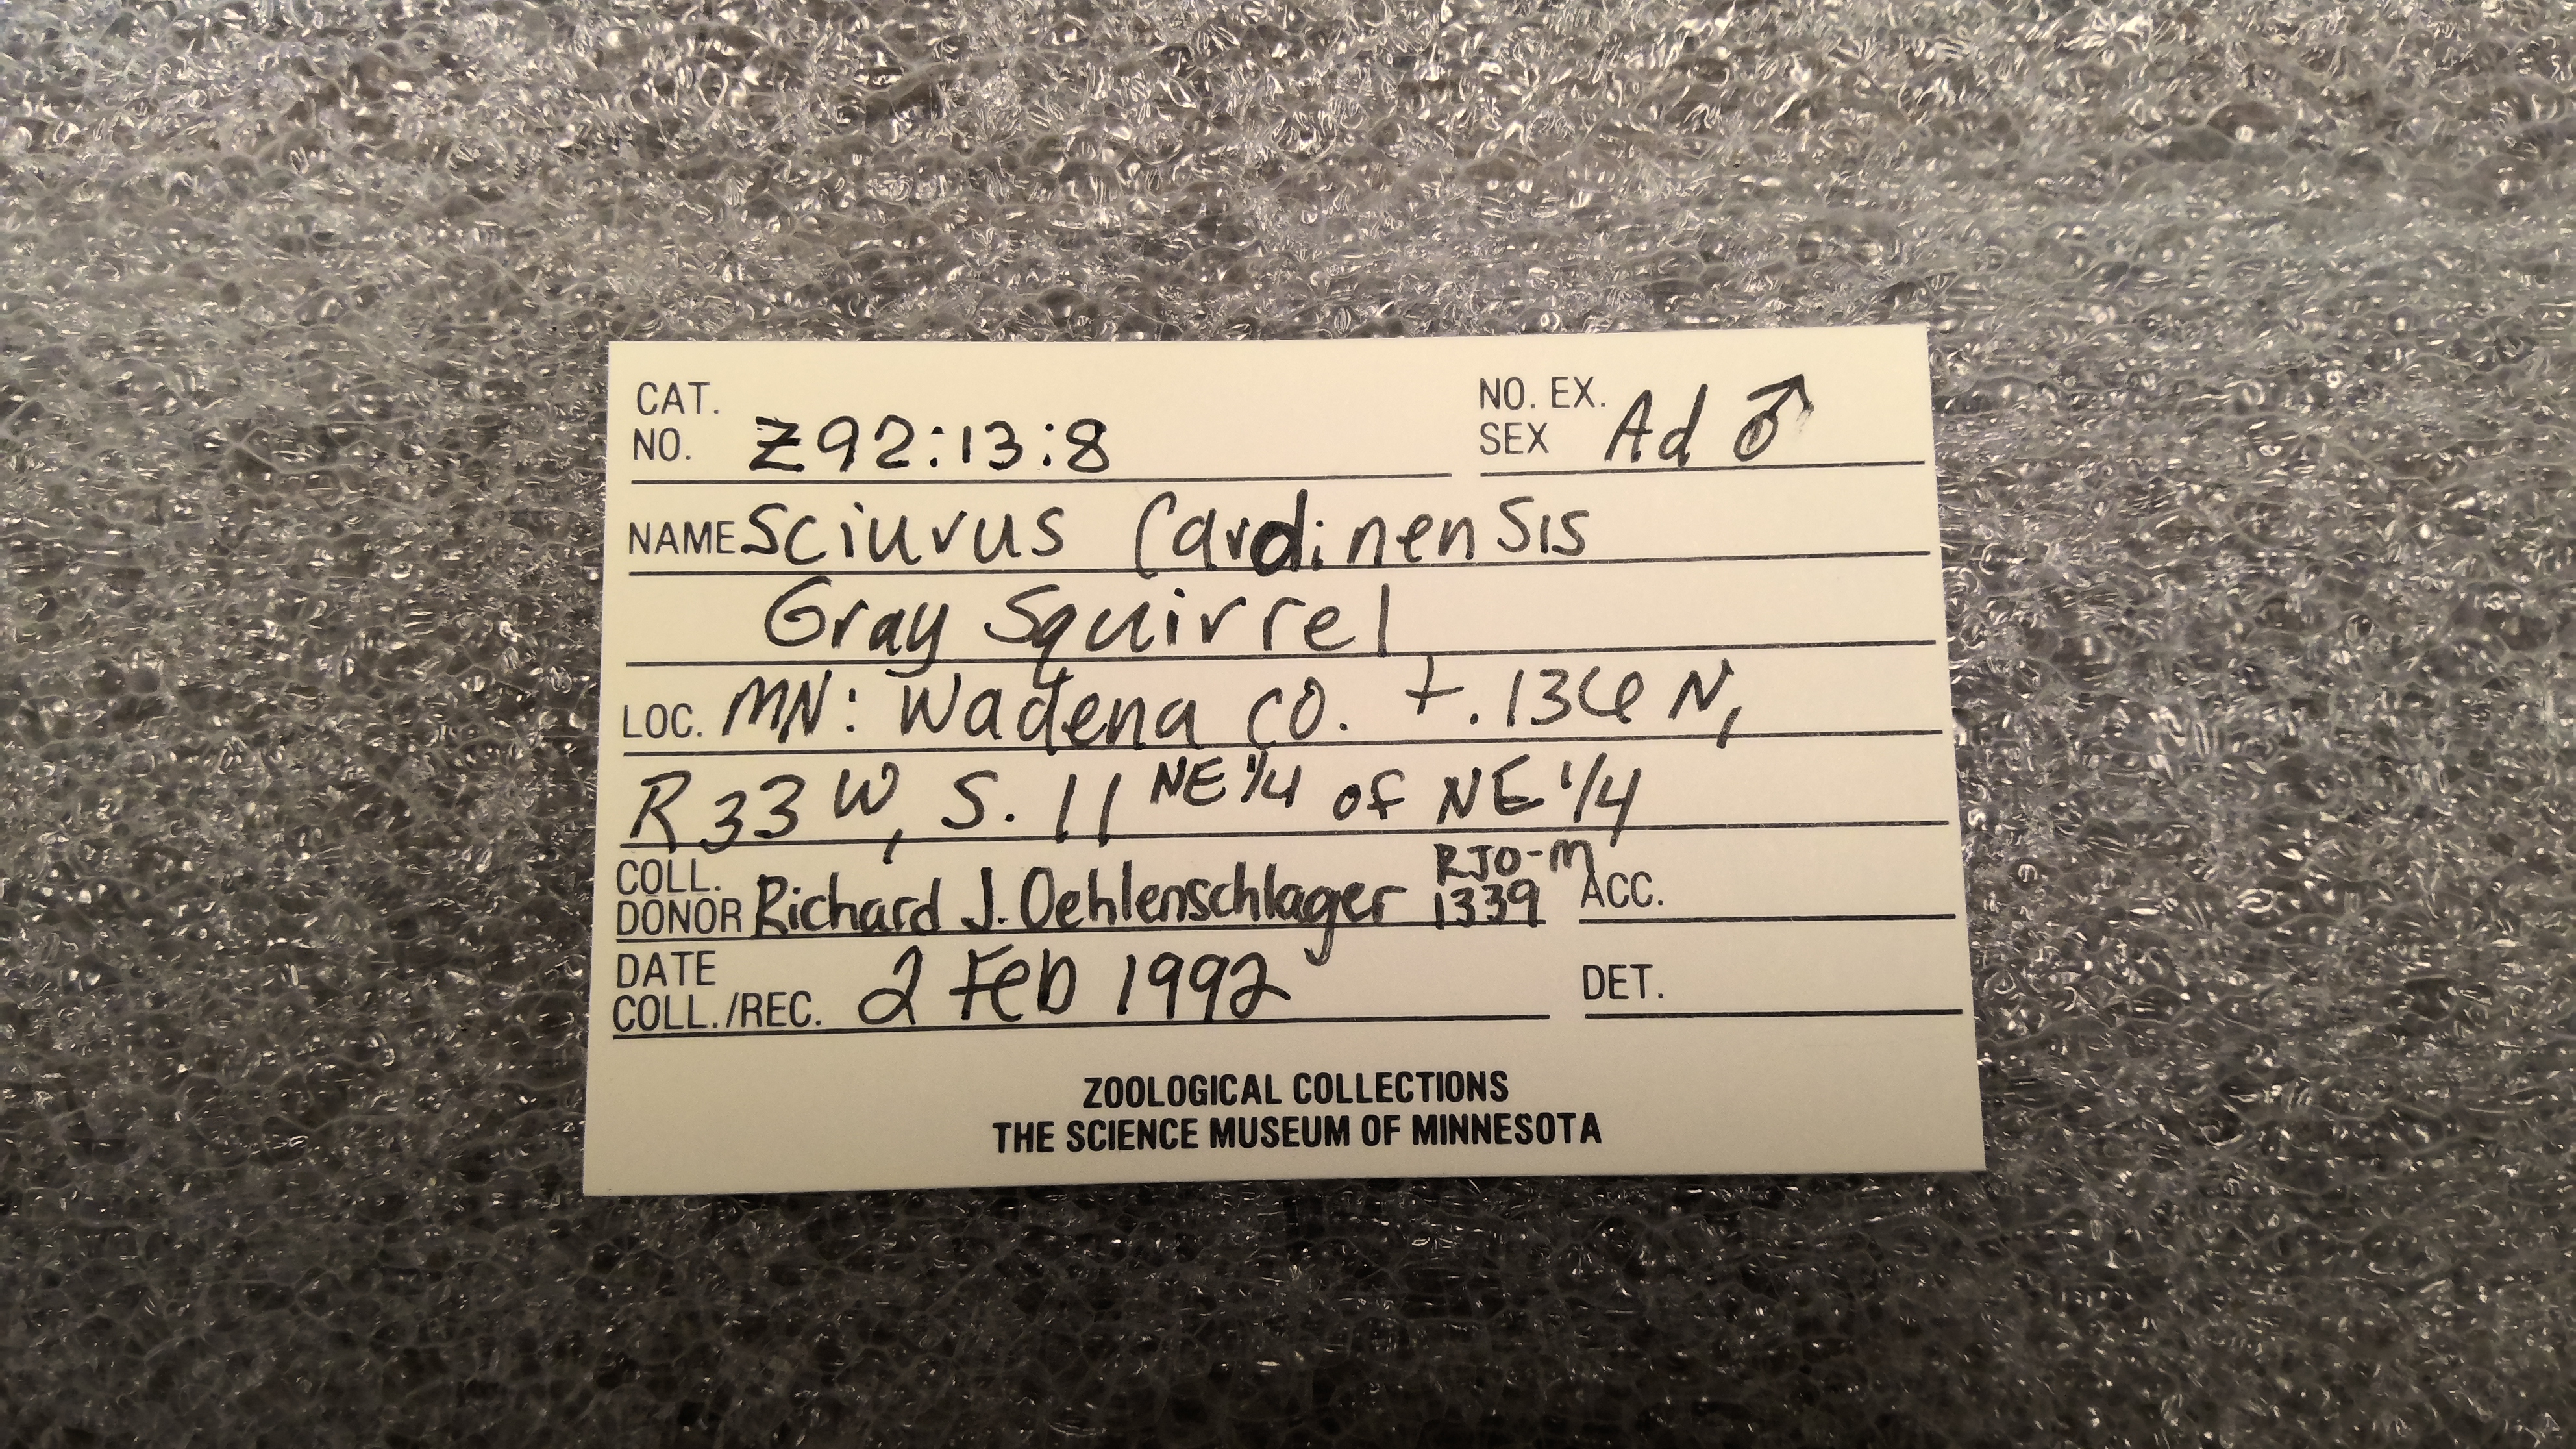 CAT. NO. Z92:13:8 NO. EX. SEX Ad ♂
NAME Sciurus Cardinensis
Gray Squirrel
LOC. MN: Wadena CO. t. 136 N,
R33 W, S. 11 NE 1/4 of NE 1/4
COLL. DONOR Richard J. Oehlenschlager RJO-M 1339 ACC.
DATE COLL./REC. 2 Feb 1992 DET.
ZOOLOGICAL COLLECTIONS
THE SCIENCE MUSEUM OF MINNESOTA